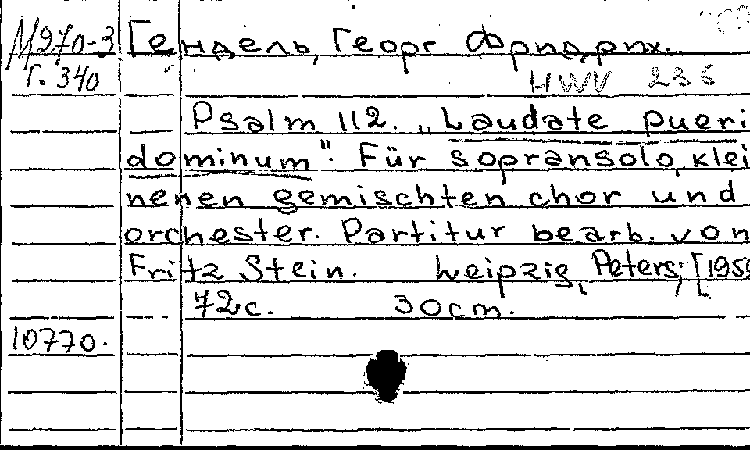 М970-3 Гендель, Георг Фридрих.
Г. 340 HWV 236
Psalm 112. „Laudate pueri
dominum". Für sopransolo, klei
nenen gemischten chor und
orchester. Partitur bearb. von
Fritz Stein. Leipzig, Peters; [195
72с. 30cm.
10770.